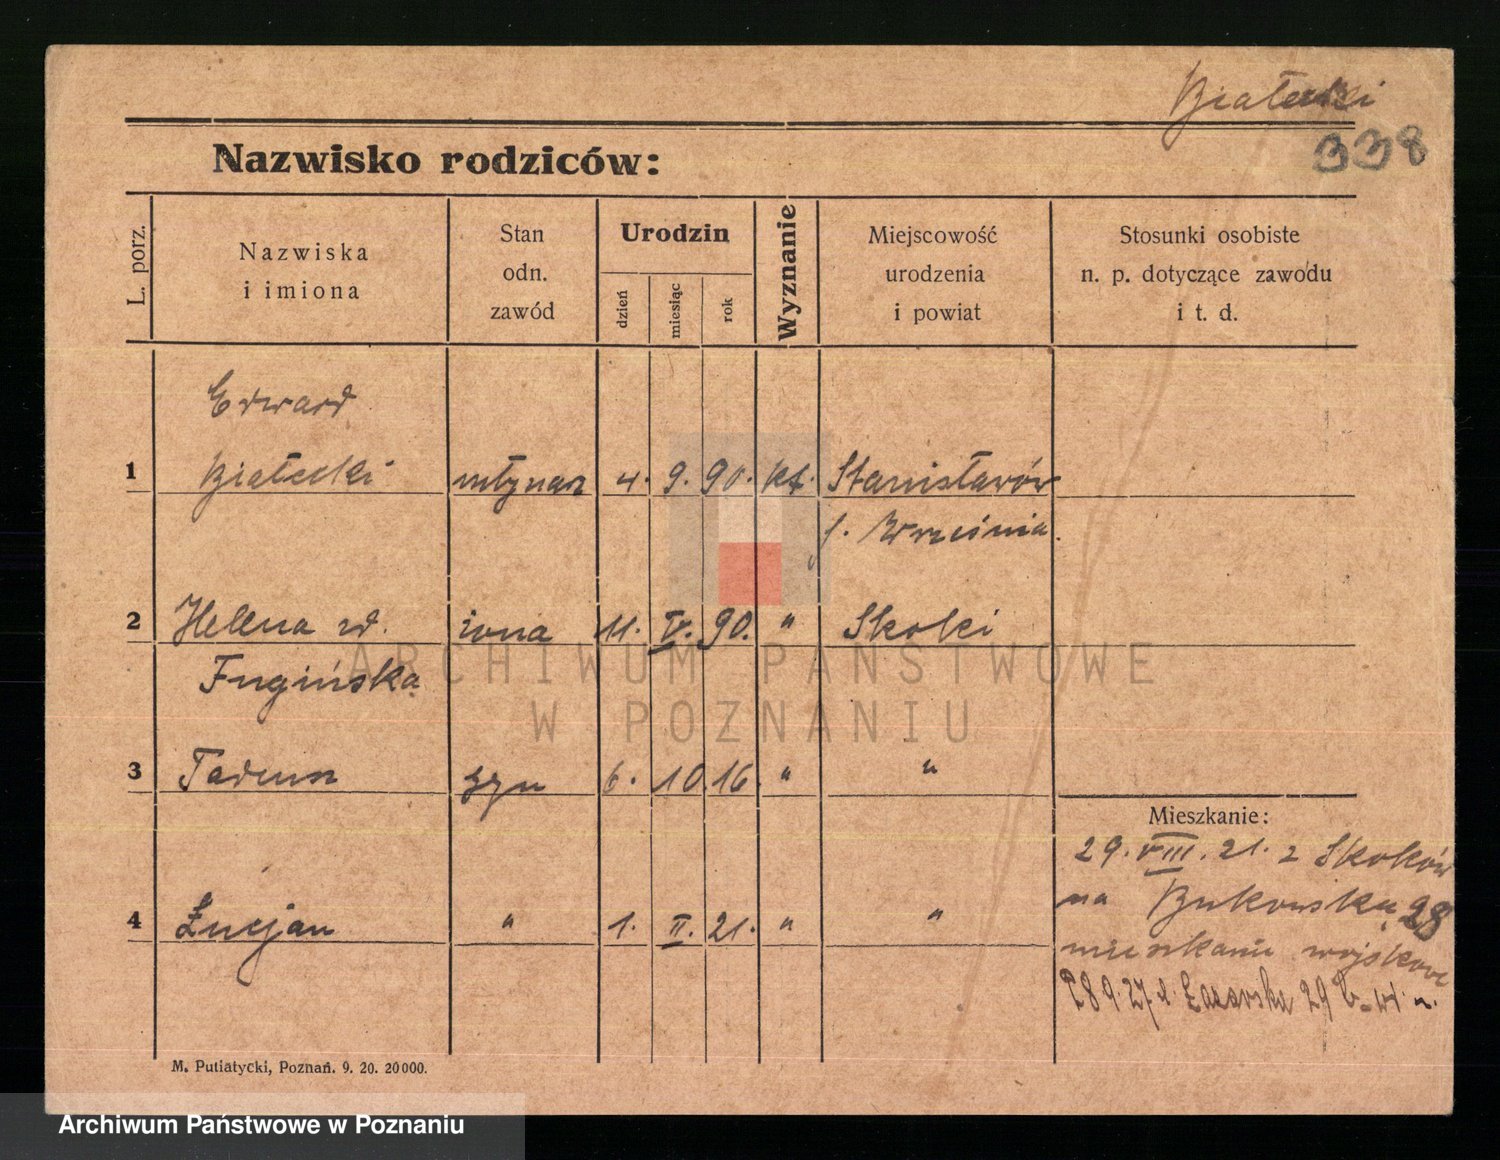 Białecki
338
Nazwisko rodziców:
L. porz.
Nazwiska
i imiona
Stan
odn.
zawód
Urodzin
dzień
miesiąc
rok
Wyznanie
Miejscowość
urodzenia
i powiat
Stosunki osobiste
n. p. dotyczące zawodu
i t. d.
Edward
1 Białecki młynarz 4. 9. 90. kt. Stanisławów
Września.
2 Helena zd. żona 11. V. 90. " Skoki
3 Tadeusz syn 6. 10. 16. " "
Mieszkanie:
29. VIII. 21. z Skoków
na Bukowską 28
4 Łucjan " 1. II. 21. " "
mieszkanie wojskowe
29
M. Putiatycki, Poznań. 9. 20. 20000.
ARCHIWUM PAŃSTWOWE
W POZNANIU
Archiwum Państwowe w Poznaniu